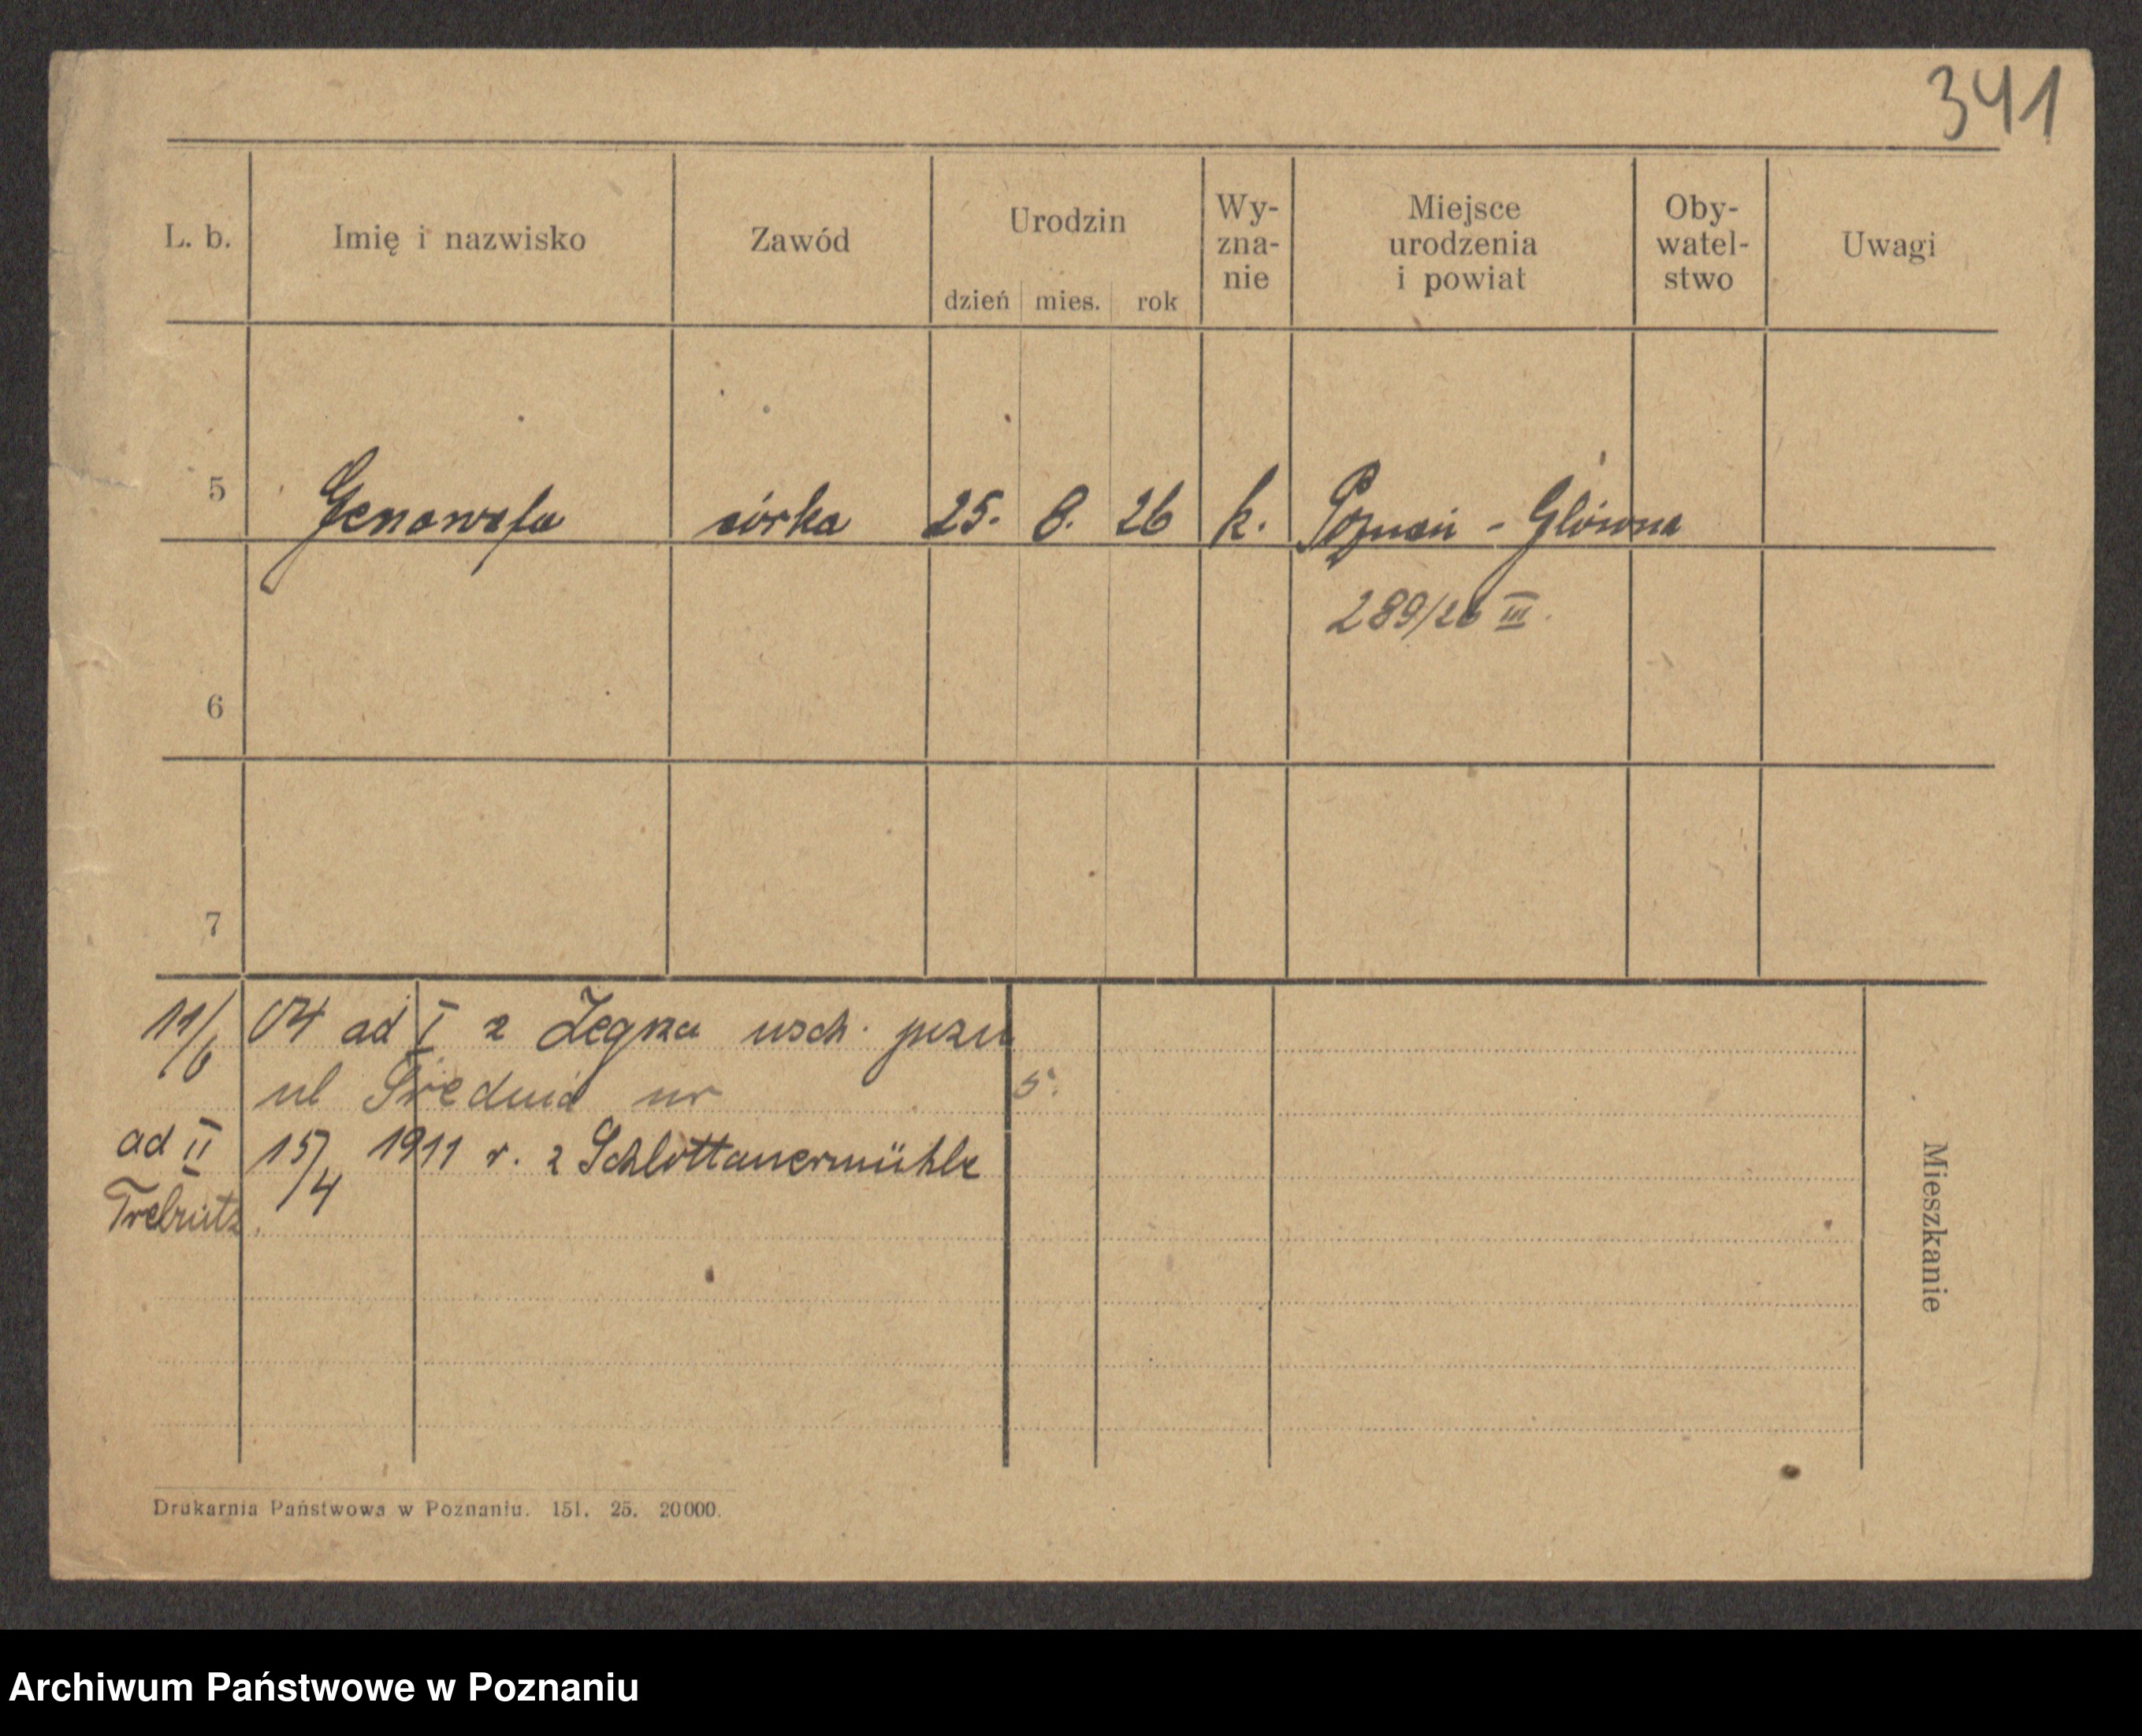 341
L. b. Imię i nazwisko Zawód Urodzin dzień mies. rok Wy-zna-nie Miejsce urodzenia i powiat Oby-watel-stwo Uwagi
5 Genowefa córka 25. 8. 26 k. Poznań - Główna
289/26 III.
6
7
11/6 04 ad I z Zegrza wsch. przy
ul Średnia nr 5.
ad II 15/4 1911 r. z Schlottauermühle
Trebnitz.
Mieszkanie
Drukarnia Państwowa w Poznaniu. 151. 25. 20000.
Archiwum Państwowe w Poznaniu